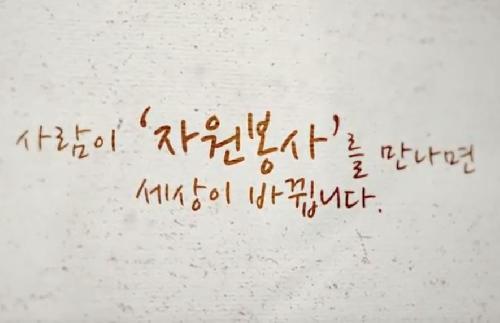 사람이 '자원봉사'를 만나면
세상이 바뀝니다.